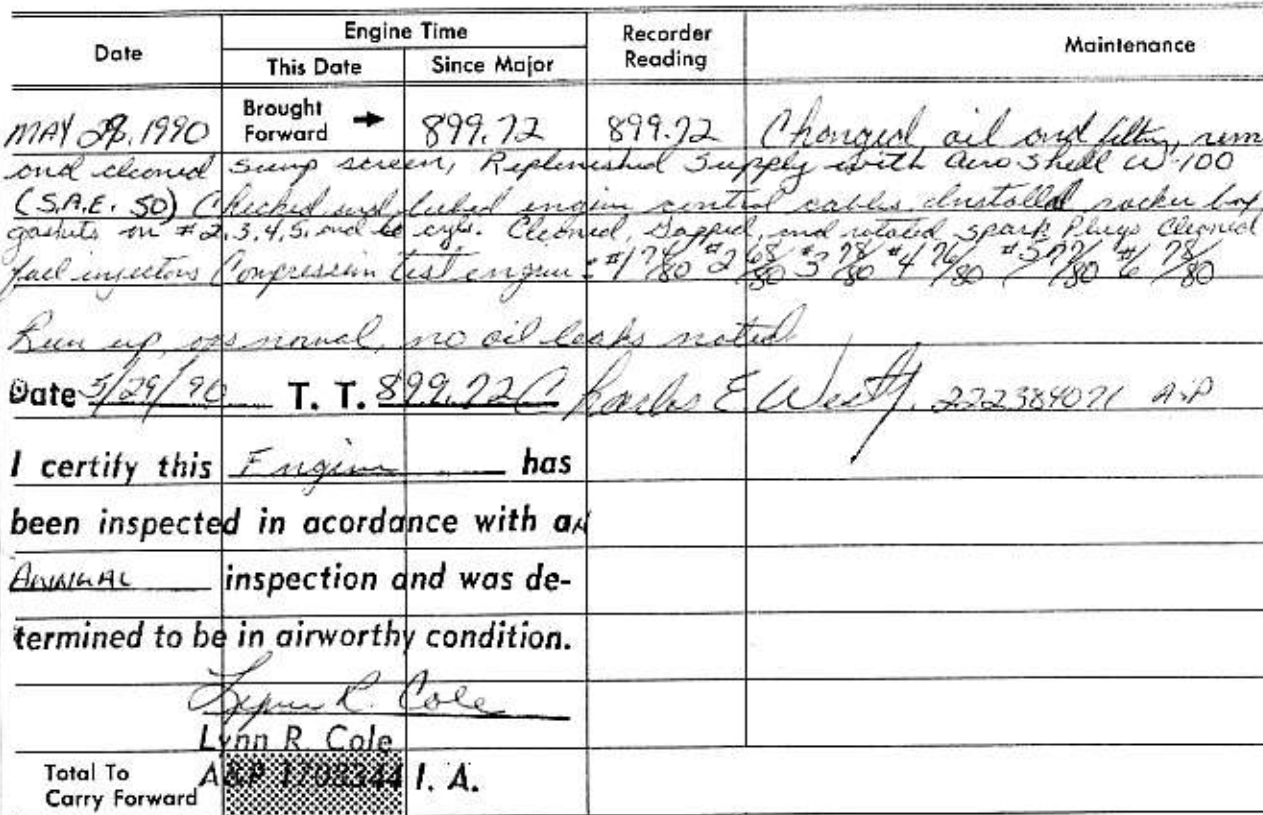 Date Engine Time Recorder Reading Maintenance
This Date Since Major
MAY 29, 1990 Brought Forward → 899.72 899.72 Changed oil and filter, rem
and cleaned sump screen, Replenished Supply with Aero Shell W-100
(S.A.E. 50) Checked and lubed engine control cables. Installed rocker box
gaskets on #2,3,4,5, and 6 cyls. Cleaned, Gapped, and rotated spark Plugs Cleaned
fuel injectors Compression test engine: #1 74/80 #2 68/80 #3 78/80 #4 76/80 #5 77/80 #6 78/80
Run up, ops normal, no oil leaks noted
Date 5/29/90 T. T. 899.72 Charles E West 222384071 A&P
I certify this Engine has
been inspected in acordance with an
ANNUAL inspection and was de-
termined to be in airworthy condition.
Lynn R. Cole
Lynn R. Cole
Total To Carry Forward A&P 1708344 I. A.